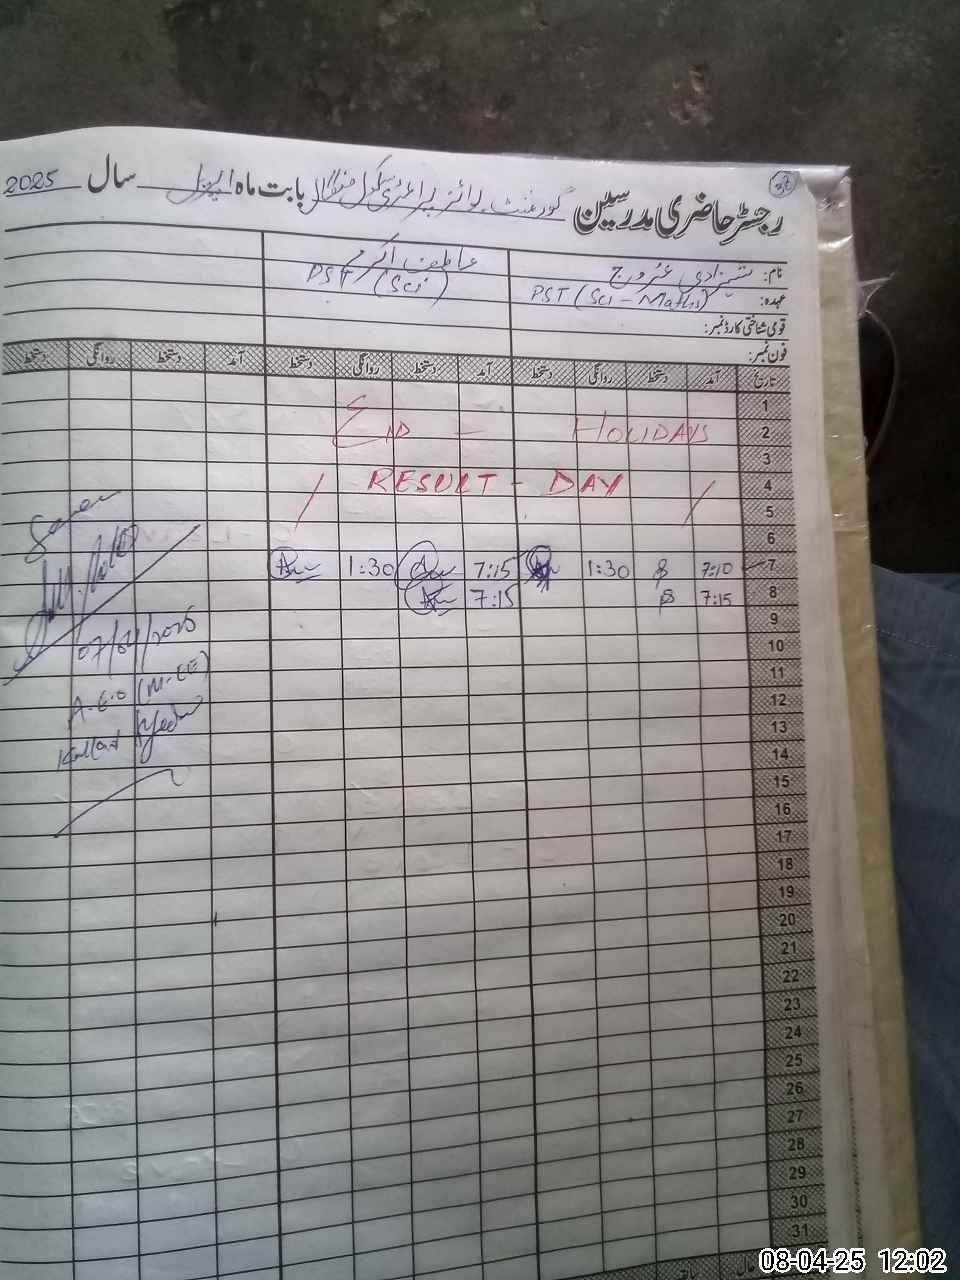 36
رجسٹر حاضری مدرسین گورنمنٹ بوائز پرائمری سکول بابت ماہ اپریل سال 2025
نام: شہزادی عروج عاطف اکرم
عہدہ: PST (Sci - Maths) PST (Sci)
قومی شناختی کارڈ نمبر:
فون نمبر:
تاریخ آمد دستخط روانگی دستخط آمد دستخط روانگی دستخط آمد دستخط روانگی دستخط
1
2 EID - HOLIDAYS
3
4 RESULT - DAY
5
6
7 7:10 1:30 7:15 1:30
8 7:15 7:15
9
10
11
12
13
14
15
16
17
18
19
20
21
22
23
24
25
26
27
28
29
30
31
Seen
07/04/2025
A.E.O (M-EE)
08-04-25 12:02